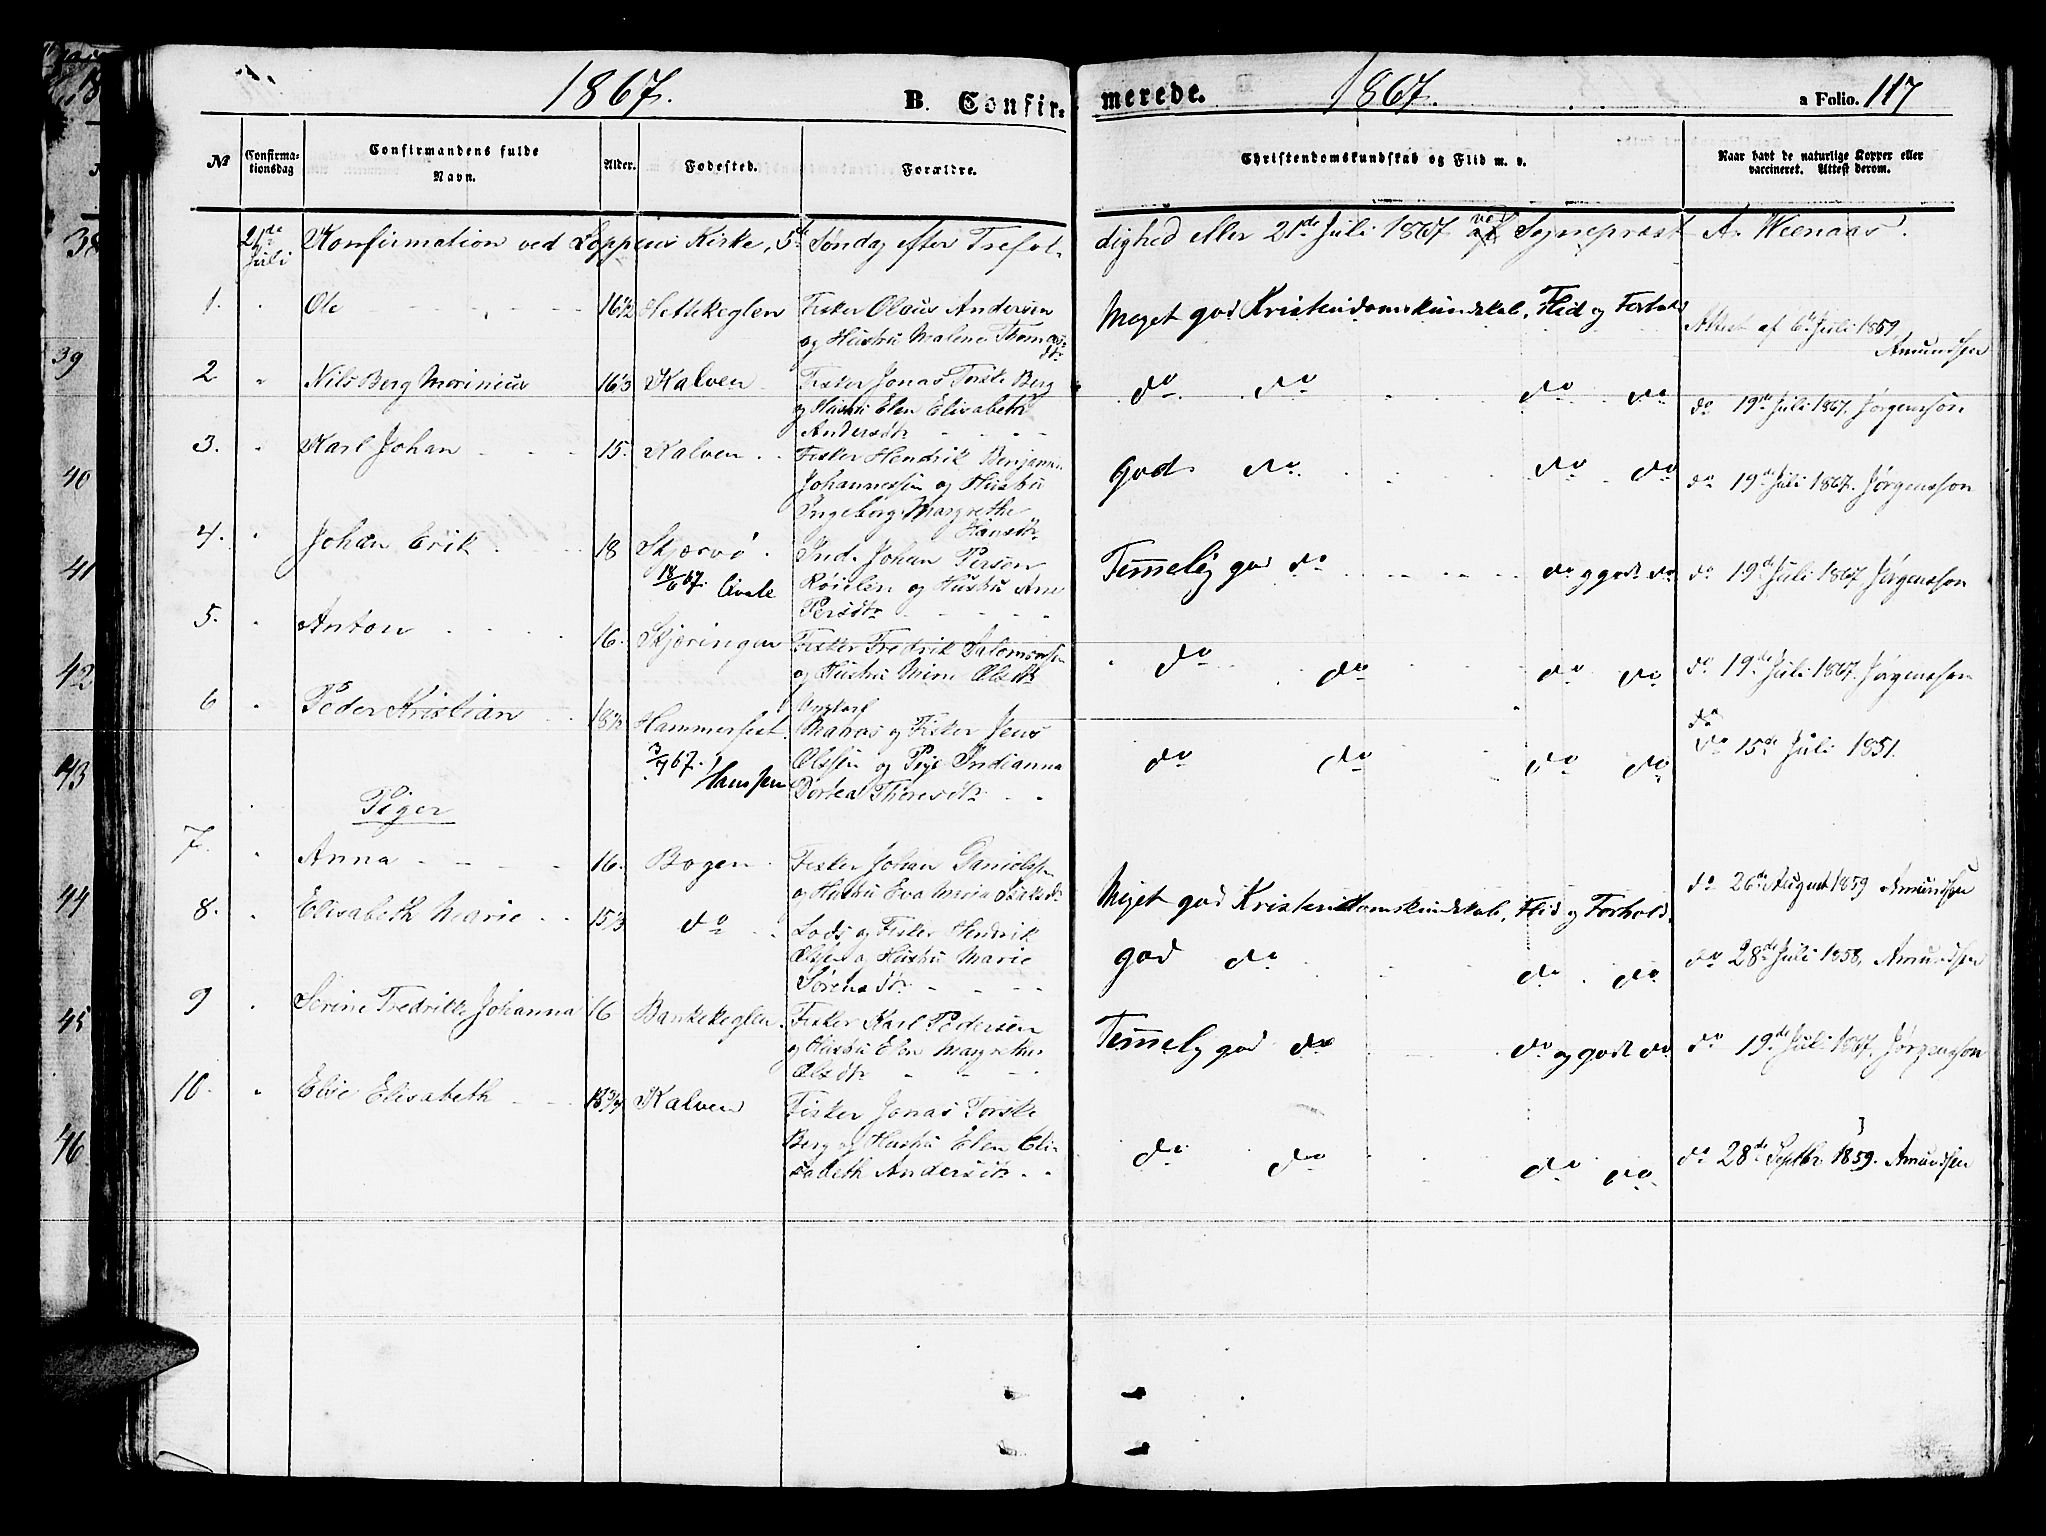 1867.
B. Confir-
merede.
1867.
a Folio. 117
№
Confirma-
tionsdag
Confirmandens fulde
Navn.
Alder.
Fødested.
Forældre.
Christendomskundskab og Flid m. v.
Naar havt de naturlige Kopper eller
vaccineret. Attest derom.
21de Juli
Konfirmation ved Loppens Kirke, 5te Søndag efter Trefol-
dighed eller 21de Juli 1867 ved Sognepræst A. Weenaas.
1. Ole 16 1/2
Fisker Olaus Andersen
og Hustru Malene Thomas-
dtr
Meget god Kristendomskundskab, Flid og Forhold
Attest af 6te Juli 1859
Amundsen
2 Nils Berg Morinius 16 1/3 Kalven
Fisker Jonas Torske Berg
og Hustru Elen Elisabeth
Andersdtr
do. do do do
do 19de Juli 1867. Jørgensson
3. Karl Johan 15. Kalven
Fisker Hendrik Benjamin
Johannessen og Hustru
Ingeborg Margrethe
Hansdtr
god do do do
do 19de Juli 1867. Jørgensson
4. Johan Erik 18 Skjærvø
Ind. Johan Persen
Røielen og Hustru Ane
Persdtr
Temmelig god do do og godt do
do 19de Juli 1867 Jørgensson
5. Anton 16. Skjøringen
Fisker Fredrik Salomonsen
og Hustru Mine Olsdtr
do do do do
do 19de Juli 1867. Jørgensson
6 Peder Kristian 18 1/2 Hammerfest.
3/7 67. Hanssen
Ungkarl
Matros og Fisker Jens
Olssen og Pige Indianna
Dortea Thoresdtr
do do do do
do
do 15de Juli 1851.
Piger
7. Anna 16. Bogen
Fisker Johan Danielssen
og Hustru Eva Maria Isaksdtr
Meget god Kristendomskundskab, Flid og Forhold.
do 26de August 1859 Amundsen
8. Elisabeth Marie 15 1/3 do
Lods og Fisker Hendrik
Olsen og Hustru Marie
Sørensdtr
god do do do
do 28de Juli 1858, Amundsen
9 Serine Fredrikke Johanna 16 Bankekeglen
Fisker Karl Pedersen
og Hustru Elen Margrethe
Olsdtr
Temmelig god do do og godt do
do 19de Juli 1867, Jørgensson
10. Elise Elisabeth 18 3/4 Kalven
Fisker Jonas Torske
Berg og Hustru Elen Eli-
sabeth Andersdtr
do do do do
do 28de Septbr. 1859. Amundsen
38
39
40
41
42
43
44
45
46